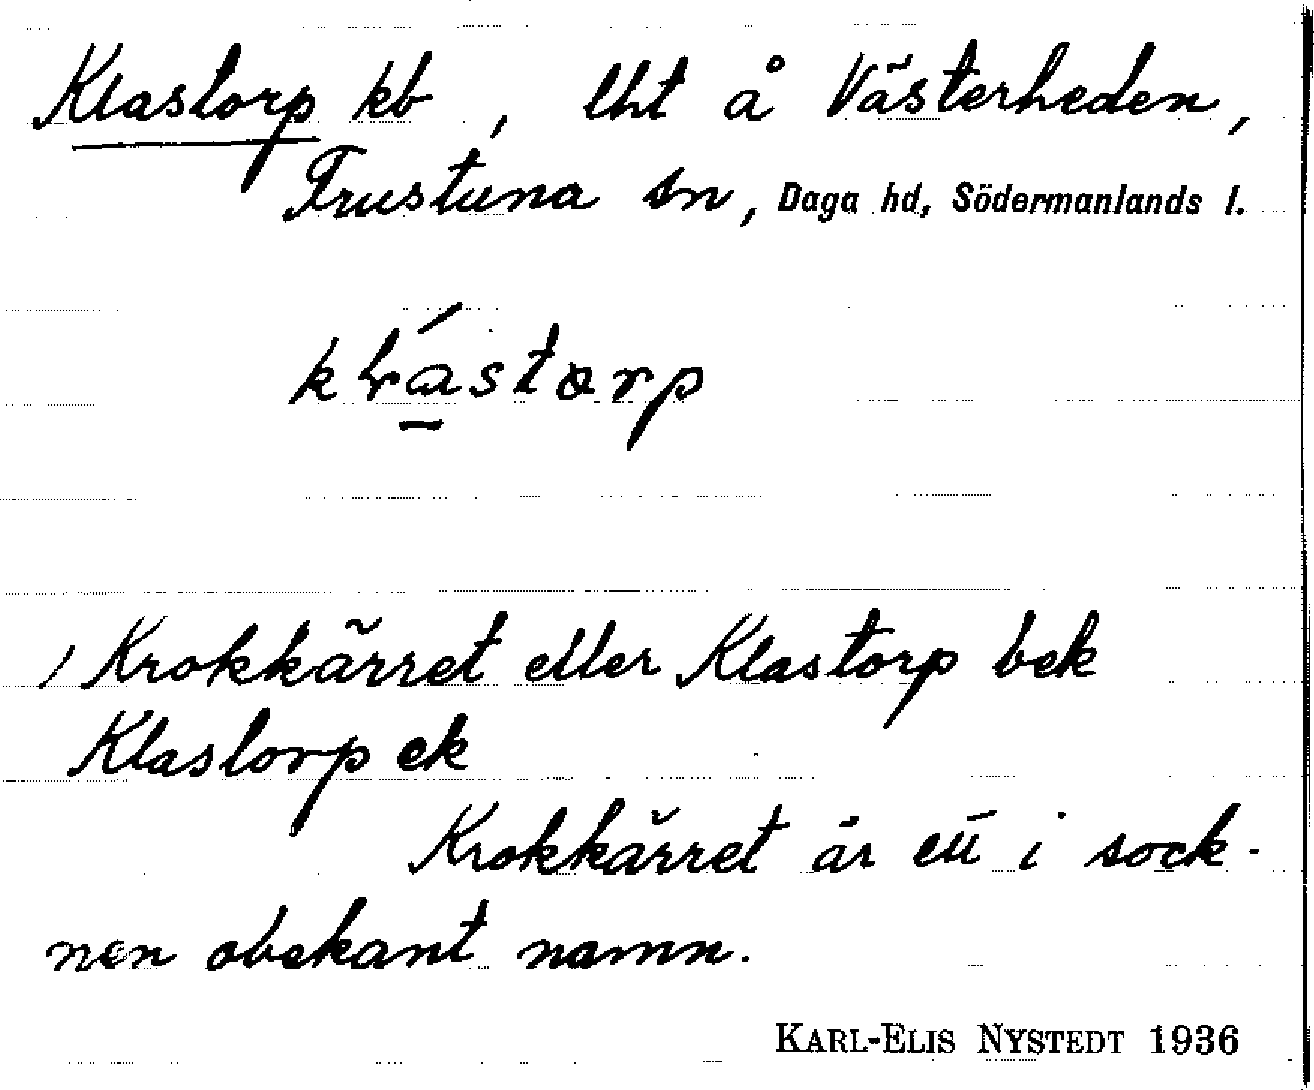 Klastorp kb, lht å Västerheden,
Frustuna sn, Daga hd, Södermanlands l.
klástorp
/ Krokkärret eller Klastorp bek
Klastorp ek
Krokkärret är ett i sock-
nen obekant namn.
KARL-ELIS NYSTEDT 1936